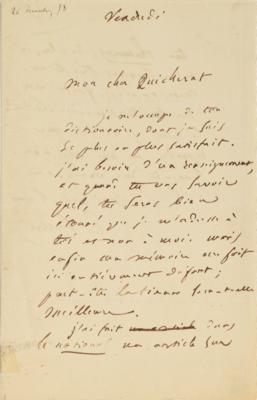 Vendredi
mon cher Quicherat
je m'occupe de ton
dictionnaire, dont je suis
de plus en plus satisfait.
j'ai besoin d'un renseignement,
et quand tu vas savoir
quel, tu seras bien
étonné que je m'adresse à
toi et non à moi. mais
enfin ma mémoire me fait
ici entièrement défaut;
peut-être la tienne sera-t-elle
meilleure.
j'ai fait dans
le national un article sur